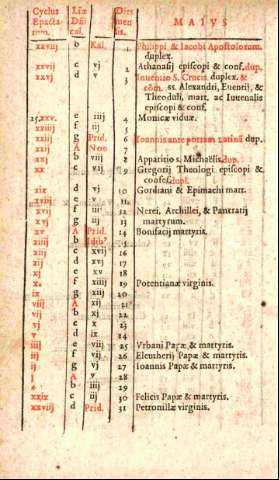 Cyclus Epactarum. Lrę Dñical. Dies mensis. MAIVS
xxviij b Kal. 1 Philippi & Iacobi Apostolorum. duplex.
xxvij c vj 2 Athanasij episcopi & conf. dup.
xxvj d v 3 Inuentio S. Crucis. duplex. & cõm. ss. Alexandri, Euentij, & Theoduli, mart. ac Iuuenalis episcopi & conf.
25.xxv. e iiij 4 Monicæ viduæ.
xxiiij f iij 5
xxiij g Prid. 6 Ioannis ante portam Latinã dup.
xxij A Non 7
xxj b viij 8 Apparitio s. Michaëlis. dup.
xx c vij 9 Gregorij Theologi episcopi & confes. dupl.
xix d vj 10 Gordiani & Epimachi mart.
xviij e v 11
xvij f iiij 12 Nerei, Archillei, & Pancratij martyrum.
xvj g iij 13
xv A Prid. 14 Bonifacij martyris.
xiiij b Idib⁹ 15
xiij c xvij 16
xij d xvj 17
xj e xv 18
x f xiiij 19 Potentianæ virginis.
ix g xiij 20
viij A xij 21
vij b xj 22
vj c x 23
v d ix 24
iiij e viij 25 Vrbani Papæ & martyris.
iij f vij 26 Eleutherij Papæ & martyris.
ij g vj 27 Ioannis Papæ & martyris.
j A v 28
* b iiij 29
xxix c iij 30 Felicis Papæ & martyris.
xxviij d Prid. 31 Petronillæ virginis.